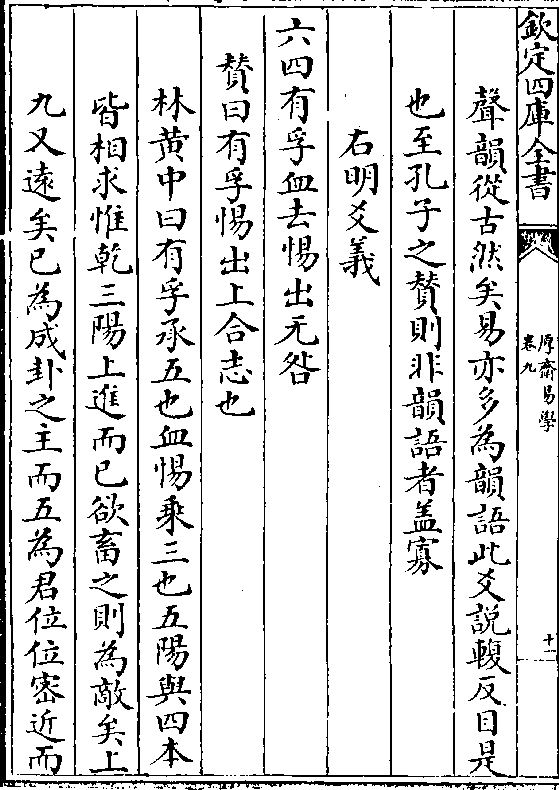 欽定四庫全書
厚齋易學
卷九
十一
聲韻從古然矣易亦多為韻語此爻説輹反目是
也至孔子之贊則非韻語者盖寡
右明爻義
六四有孚血去惕出无咎
贊曰有孚惕出上合志也
林黄中曰有孚承五也血惕乗三也五陽與四本
皆相求惟乾三陽上進而已欲畜之則為敵矣上
九又逺矣已為成卦之主而五為君位位密近而